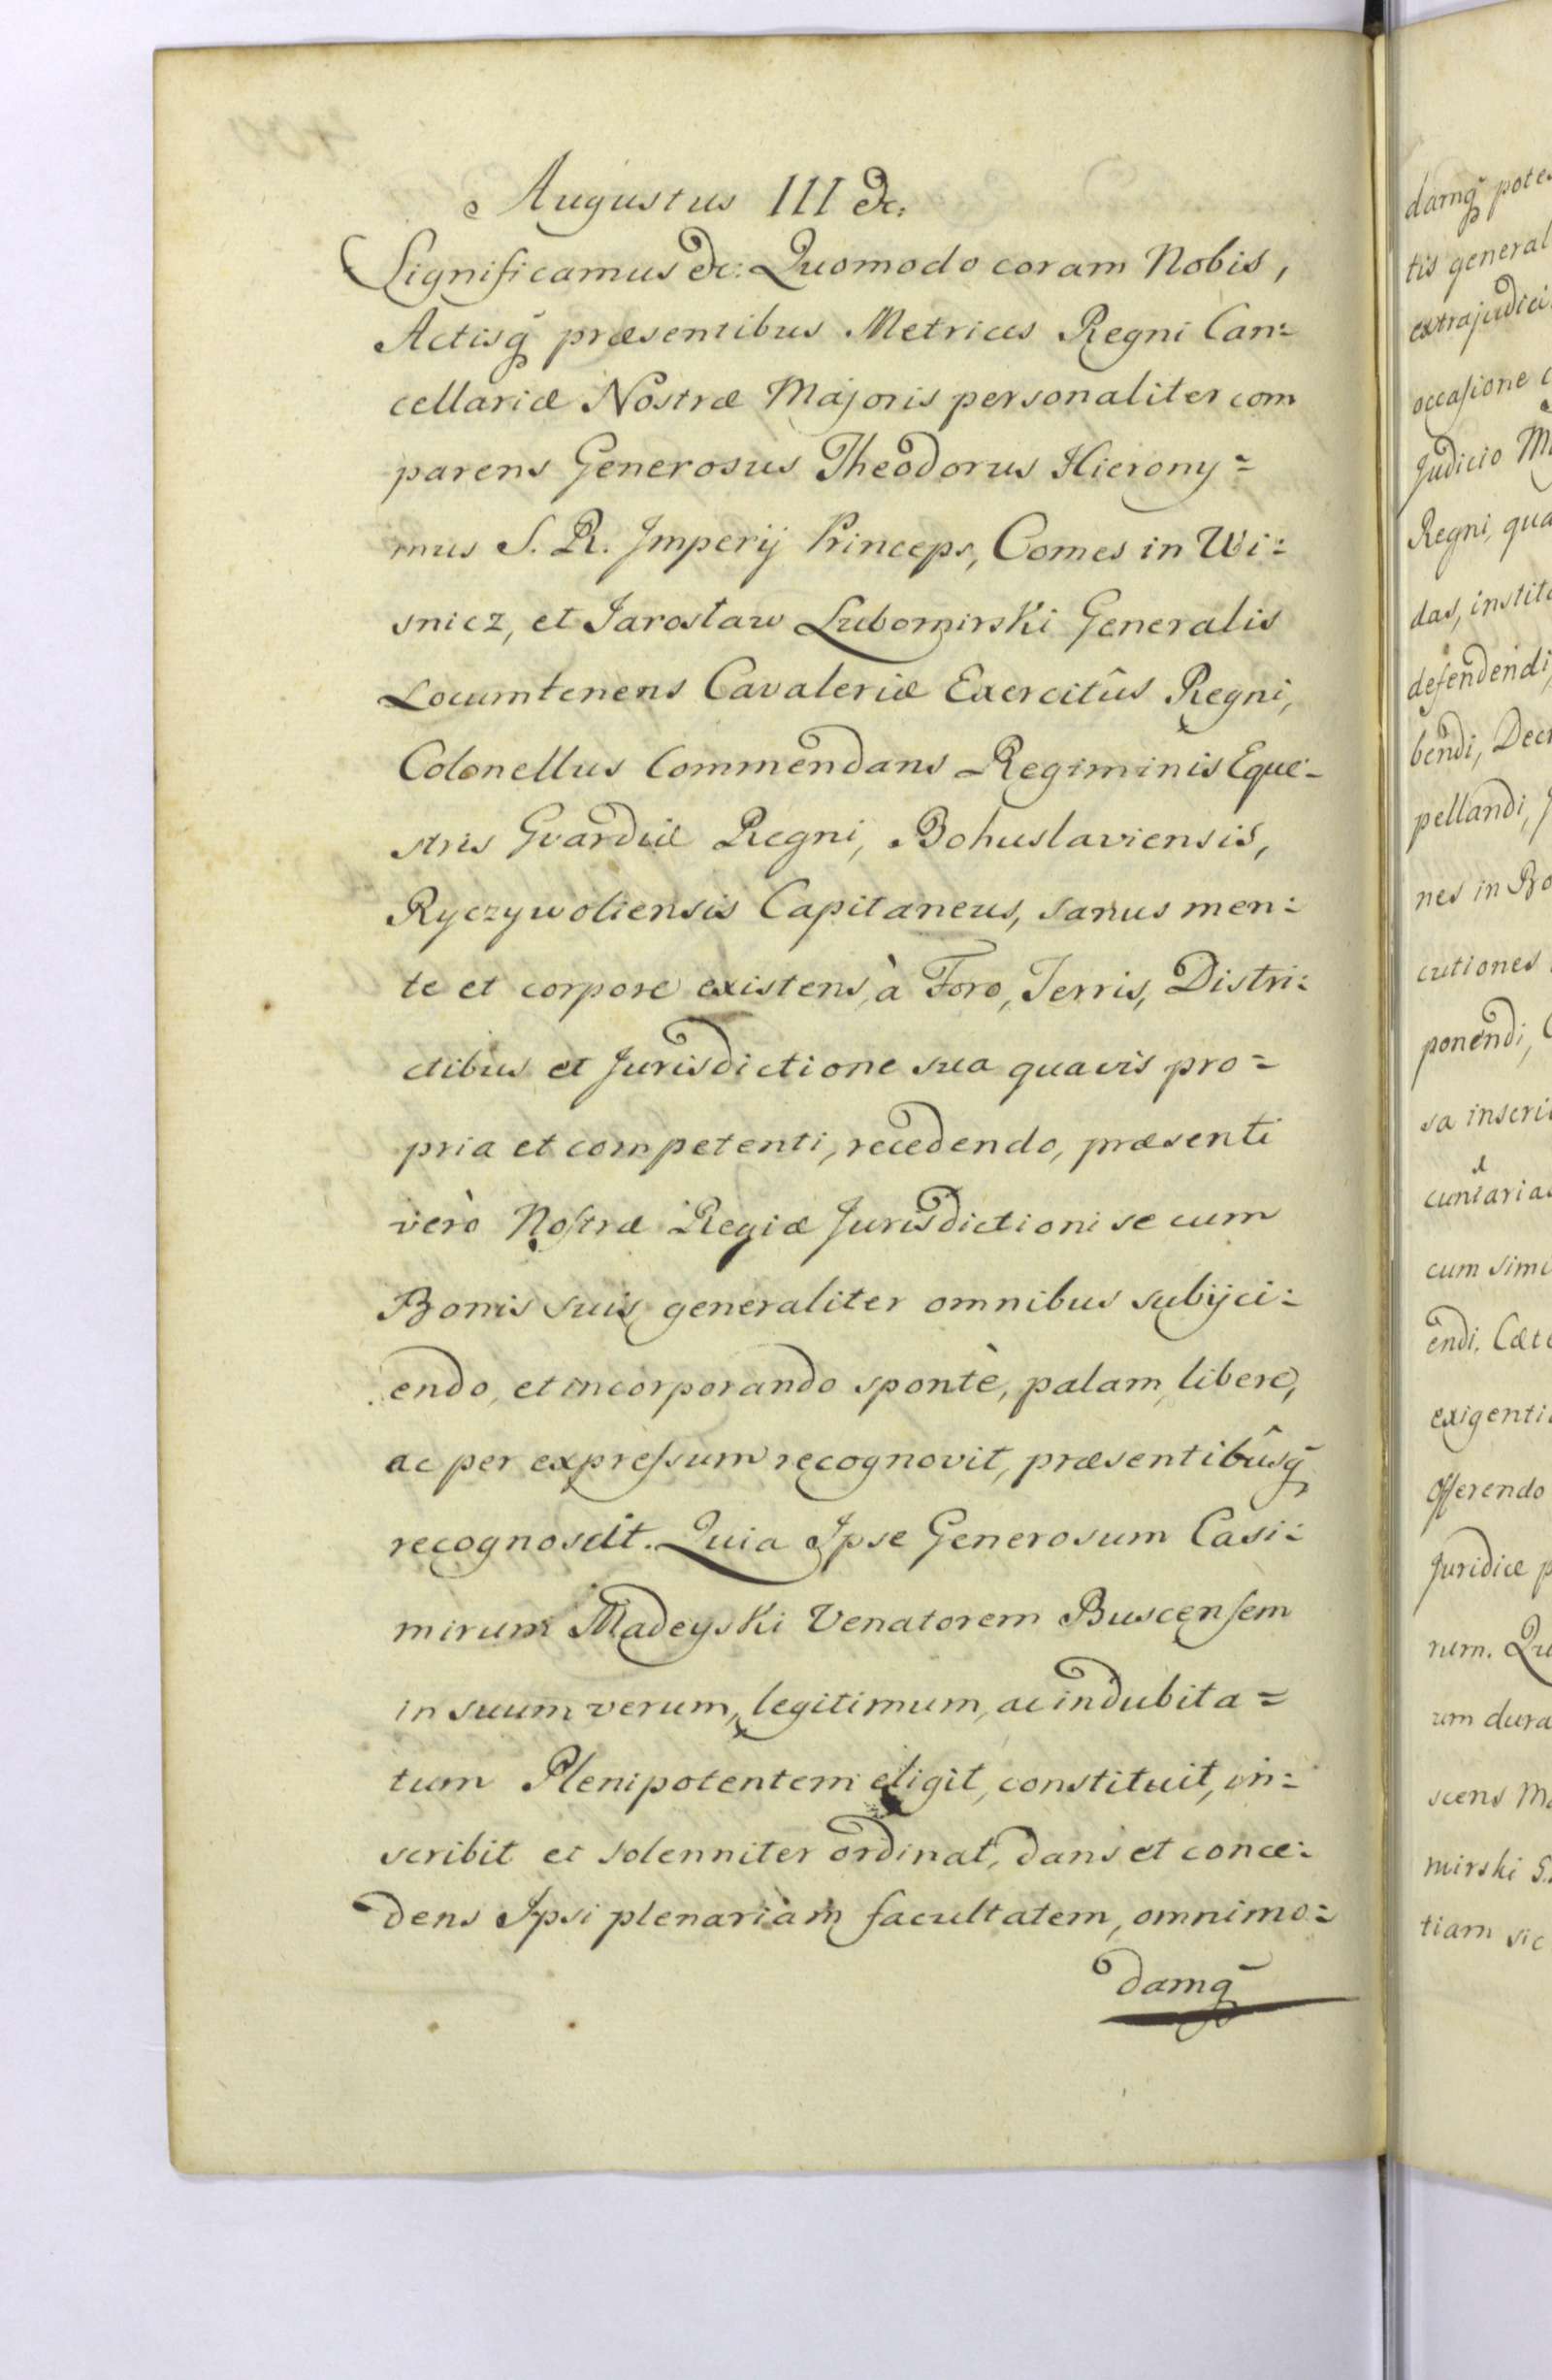 Augustus III &c.
Significamus &c: Quomodo coram Nobis,
Actisq̃ præsentibus Metrices Regni Can=
cellariæ Nostræ Majoris personaliter com
parens Generosus Theodorus Hierony=
mus S. R. Imperij Princeps, Comes in Wi=
snicz, et Jarosław Lubomirski Generalis
Locumtenens Cavaleriæ Exercitûs Regni,
Colonellus Commendans Regiminis Eque=
stris Gvardiæ Regni, Bohuslaviensis,
Ryczywoliensis Capitaneus, sanus men=
te et corpore existens, à Foro, Terris, Distri=
ctibus et Jurisdictione sua quavis pro=
pria et competenti, recedendo, præsenti
verò Nostræ Regiæ Jurisdictioni se cum
Bonis suis generaliter omnibus subijci=
endo, et incorporando spontè, palam, libere,
ac per expressum recognovit, præsentibûsq̃
recognoscit. Quia Ipse Generosum Casi=
mirum Madeyski Venatorem Buscensem
in suum verum, legitimum, ac indubita=
tum Plenipotentem eligit, constituit, in=
scribit et solenniter ordinat, dans et conce=
dens Ipsi plenariam facultatem, omnimo=
damq̃
damq̃
tis
occasione
Judicio
Regni,
das,
defendendi,
bendi,
pellandi,
nes in
cutiones
ponendi,
sa
cum
endi.
offerendo
Juridice
rum.
um
scens
mirski
tiam sic